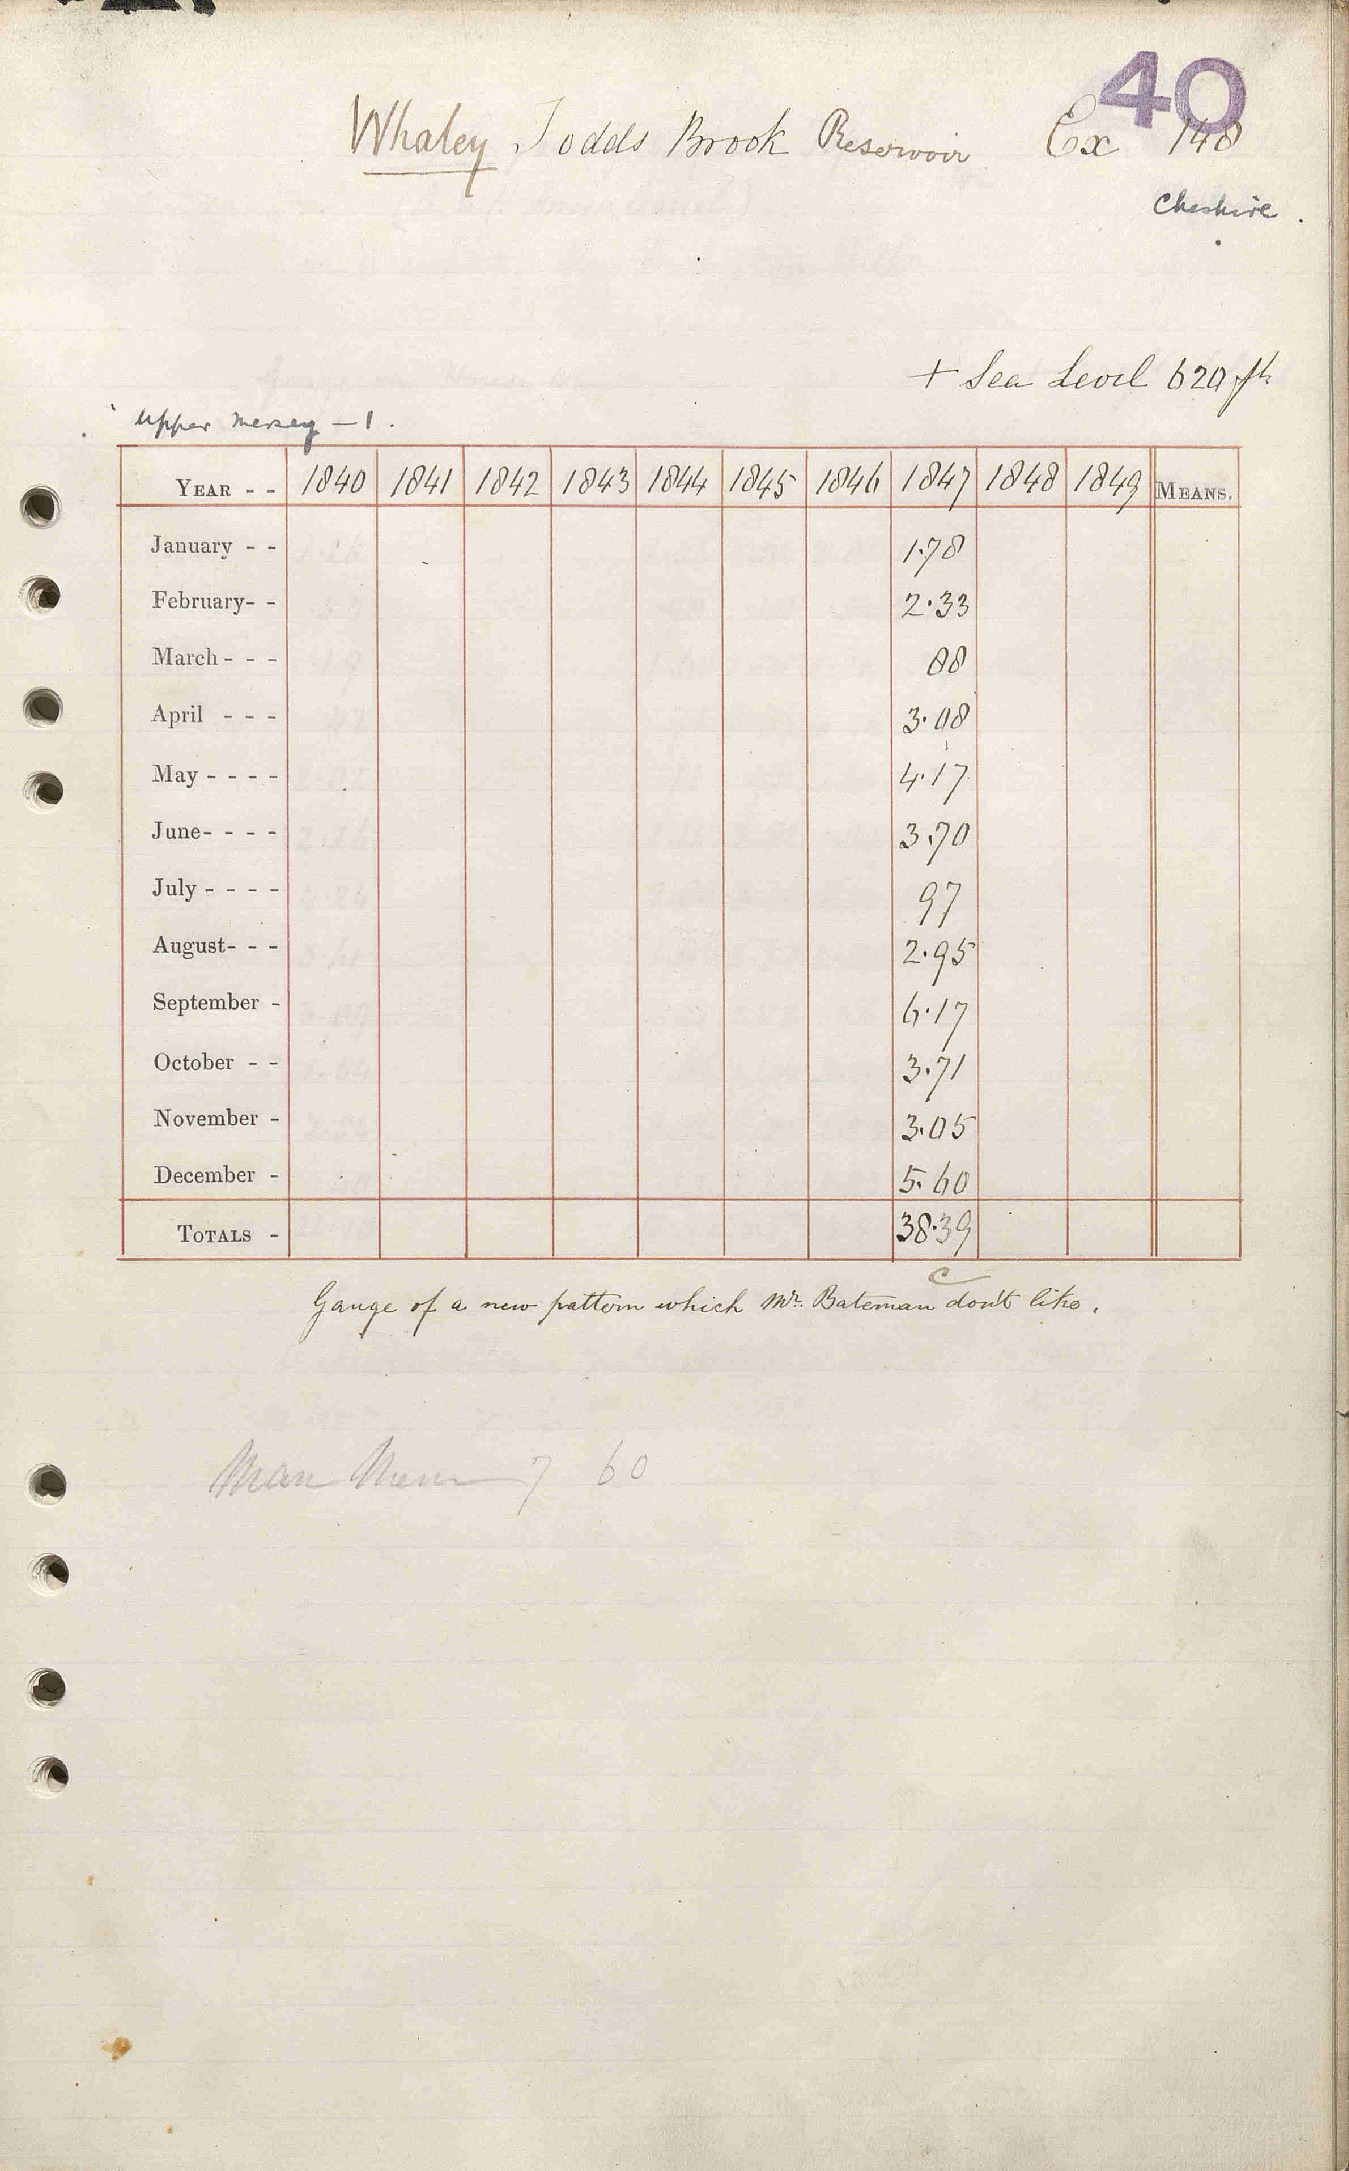 40
Whaley Todds Brook Reservoir Ex 148
Cheshire.
+ Sea Level 620 ft
Upper Mersey - 1.
YEAR - - 1840 1841 1842 1843 1844 1845 1846 1847 1848 1849 MEANS.
January - - 1.78
February- - 2.33
March - - - 88
April - - - 3.08
May - - - - 4.17
June- - - - 3.70
July - - - - 97
August- - - 2.95
September - 6.17
October - - 3.71
November - 3.05
December - 5.60
TOTALS - 38.39
C
Gauge of a new pattern which Mr. Bateman don't like.
7 60